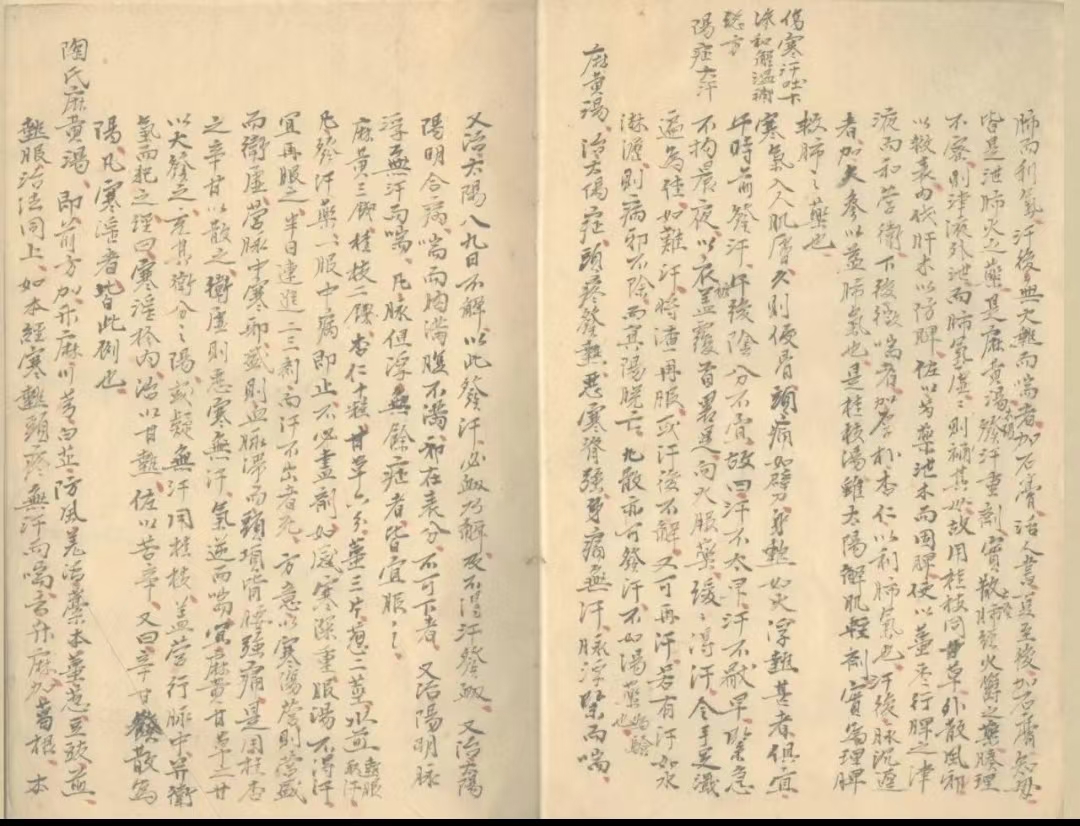 肺而利氣、汗後無大熱而喘者加石膏、治人書夏至後加石膏知母
皆是泄肺火之藥、是麻黃湯發汗重劑、實散肺經火鬱之藥、腠理
不密、則津液外泄而肺氣虛、虛則補其母、故用桂枝同甘草外散風邪
以救表、內伐肝木以防脾、佐以芍藥泄木而固脾、使以薑枣行脾之津
液而和营衛、下後微喘者加厚朴杏仁以利肺氣也、汗後脉沉遲
者、加人參以益肺氣也、是桂枝湯雖太陽解肌輕劑、實為理脾
救肺之藥也
傷寒汗吐下
滲和解溫補
總方
寒氣入人肌膚、久則使骨頭痛如劈、身熱如火、浮熱甚者、俱宜
午時前發汗、午後陰分不宜、故曰汗不太早、汗不厭早、緊急
陽症大汗
不拘晨夜、以衣蓋覆首、署連向火服藥、緩緩得汗、令手足濈
遍為佳、如難汗、時渣一再服、或汗後不解、又可再汗、若有汗如水
淋漓、則病邪不除、而真陽脫亡、丸散亦可發汗、不如湯藥為驗也
麻黃湯、治太陽症、頭疼發熱、惡寒脊強、身痛無汗、脉浮緊而喘
又治太陽八九日不解、以此發汗、必衂乃解、及不得汗發衂、又治太陽
陽明合病、喘而胸滿腹不滿、邪在表分、不可下者、又治陽明脉
浮無汗而喘、凡脉但浮、無餘症者、皆宜服之
麻黃三錢、桂枝二錢、杏仁十粒、甘草六分、薑三片、葱二莖、水煎熱服取汗
凡發汗藥、一服中病即止、不必盡劑、如感寒深重、服湯不得汗
宜再服之、半日連進二三劑、而汗不出者死、方意以寒陽营則营盛
而衛虛、营脉中寒、邪盛則血脉滞而頭項背腰強痛、是用桂杏
之辛甘以散之、衛虛則惡寒無汗、氣逆而喘、宜麻黃甘草之甘
以大發之、充其衛分之陽、或疑無汗用桂枝、蓋营行脉中、并衛
氣而犯之、經曰、寒淫於內、治以甘熱、佐以苦辛、又曰、辛甘發散為
陽、凡寒淫者、皆此例也
陶氏麻黃湯、即前方加升麻川芎白芷防風羌活藁本薑葱豆豉煎
熱服、治法同上、如本經寒熱頭疼無汗而喘、去升麻加葛根、本